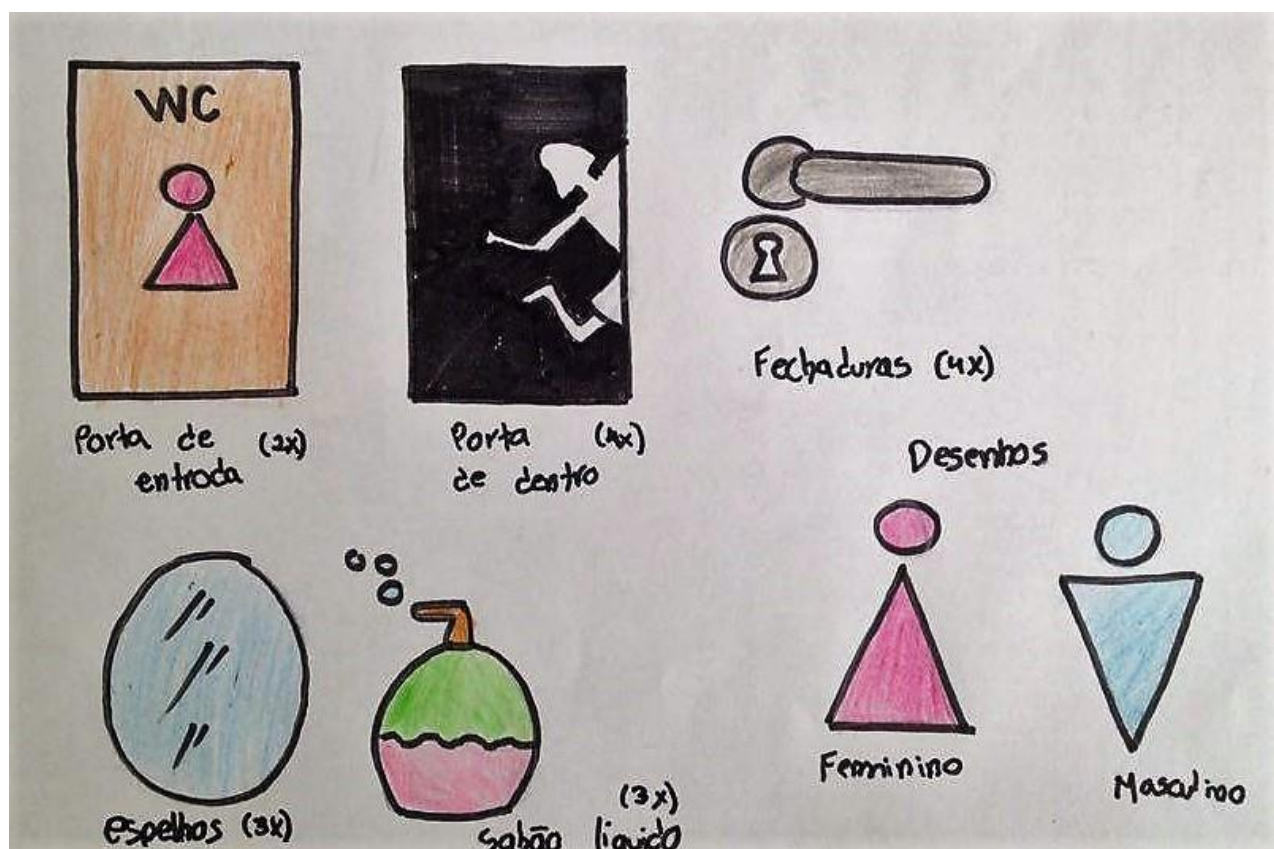 WC
Porta de (2x)
entrada
Porta (4x)
de dentro
Fechaduras (4x)
Desenhos
Feminino
Masculino
espelhos (3x)
(3x)
Sabão líquido